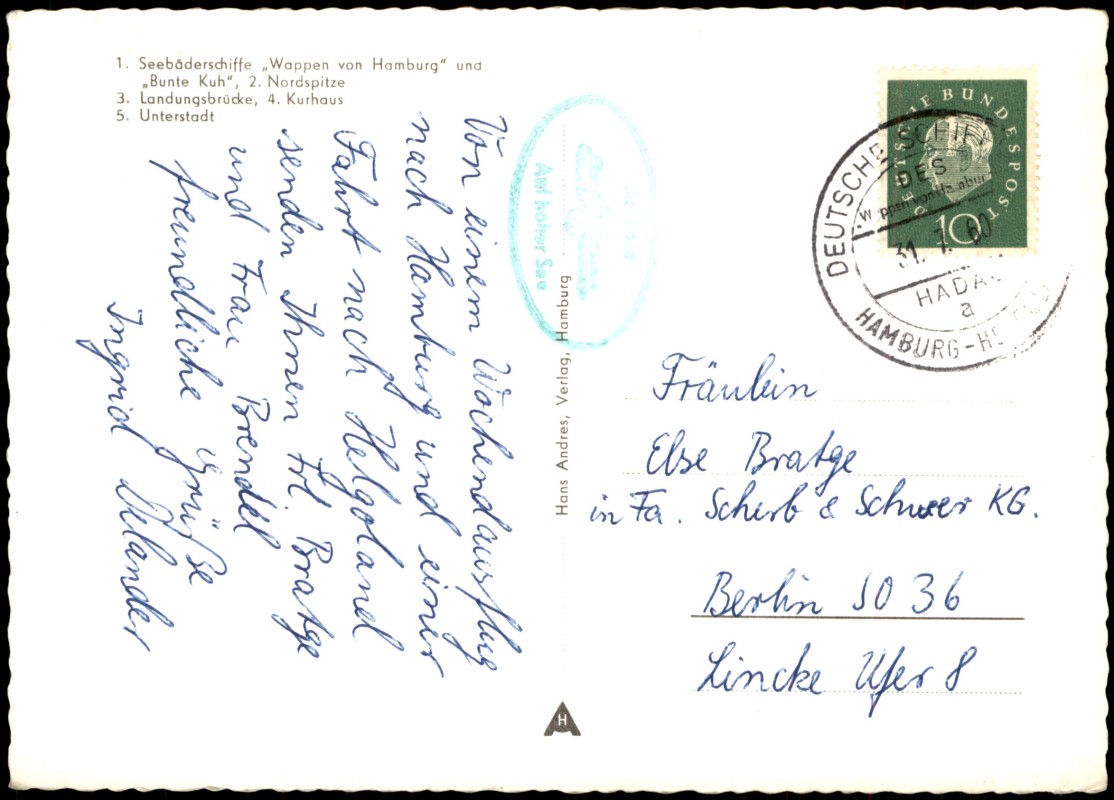 1. Seebäderschiffe „Wappen von Hamburg" und
„Bunte Kuh", 2. Nordspitze
3. Landungsbrücke, 4. Kurhaus
5. Unterstadt
Von einem Wochendausflug
nach Hamburg und einer
Fahrt nach Helgoland
senden Ihnen Frl. Bratge
und Frau Brendel
freundliche Grüße
Ingrid
Auf hoher See
Hans Andres, Verlag, Hamburg
H
DEUTSCHE BUNDESPOST
10
DEUTSCHE SCHIFF
DES
Wappen von Hambur
31. 7. 60
HADA
a
HAMBURG-
Fräulein
Else Bratge
in Fa. Scherb & Schwer KG.
Berlin SO 36
Lincke Ufer 8